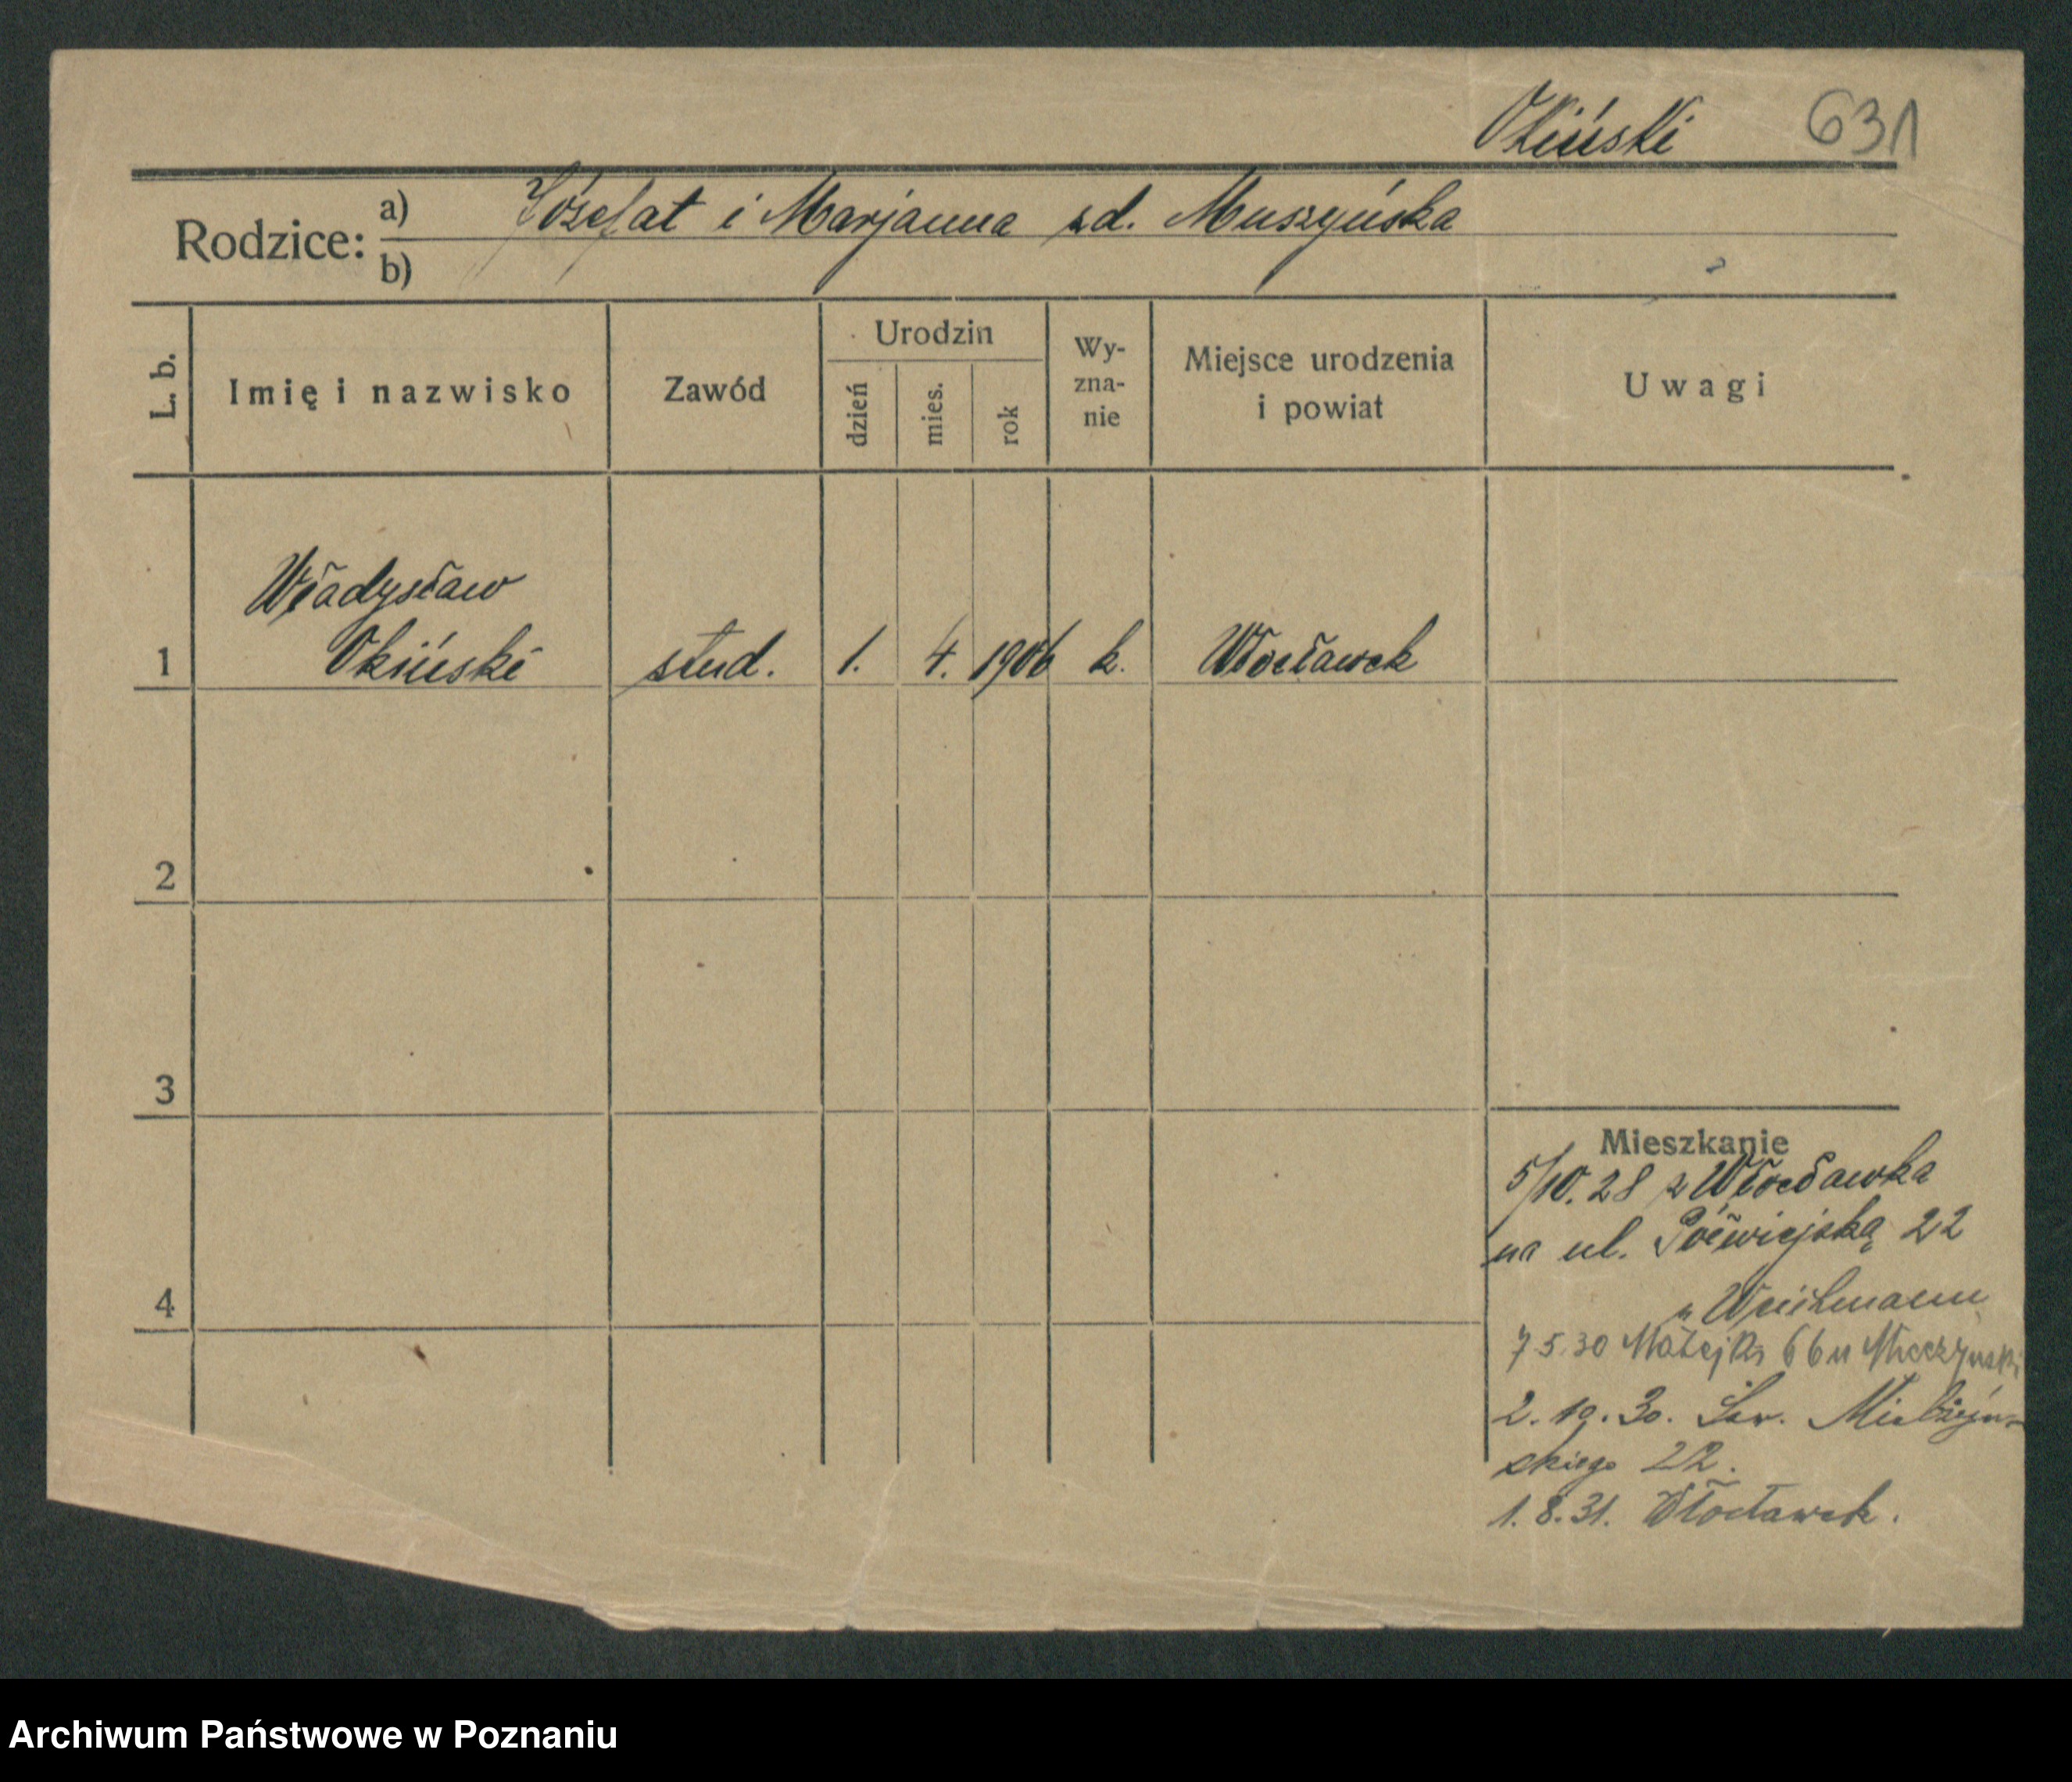 Okiński 631
Rodzice: a) Józefat i Marjanna zd. Muszyńska
b)
L. b.
Imię i nazwisko
Zawód
Urodzin
dzień
mies.
rok
Wy-
zna-
nie
Miejsce urodzenia
i powiat
Uwagi
Władysław
1 Okiński stud. 1. 4. 1906 k. Włocławek
2
3
4
Mieszkanie
5/10.28 z Włocławka
na ul. Półwiejską 22
u Weichmann
7 5.30 Matejki 66 u
2.10.30. Sew. Mielżyń-
skiego 22.
1.8.31. Włocławek.
Archiwum Państwowe w Poznaniu